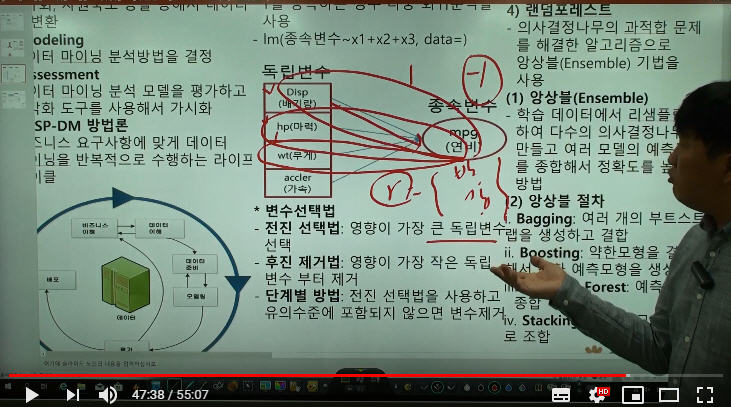 변환
odeling
이터 마이닝 분석방법을 결정
ssessment
이터 마이닝 분석 모델을 평가하고
각화 도구를 사용해서 가시화
SP-DM 방법론
즈니스 요구사항에 맞게 데이터
이닝을 반복적으로 수행하는 라이프
이클
비즈니스
이해
데이터
이해
데이터
준비
모델링
평가
배포
데이터
사용
- lm(종속변수~x1+x2+x3, data=)
독립변수
Disp
(배기량)
hp(마력)
wt(무게)
accler
(가속)
종속변수
mpg
(연비)
1
-1
r
* 변수선택법
- 전진 선택법: 영향이 가장 큰 독립변수
선택
- 후진 제거법: 영향이 가장 작은 독립
변수 부터 제거
- 단계별 방법: 전진 선택법을 사용하고
유의수준에 포함되지 않으면 변수제거
4) 랜덤포레스트
- 의사결정나무의 과적합 문제
를 해결한 알고리즘으로
앙상블(Ensemble) 기법을
사용
(1) 앙상블(Ensemble)
- 학습 데이터에서 리샘플
하여 다수의 의사결정나무
만들고 여러 모델의 예측
를 종합해서 정확도를 높
방법
(2) 앙상블 절차
i. Bagging: 여러 개의 부트스트
랩을 생성하고 결합
ii. Boosting: 약한모형을 결
예측모형을 생성
Forest: 예측
종합
iv. Stacking
로 조합
47:38 / 55:07
HD